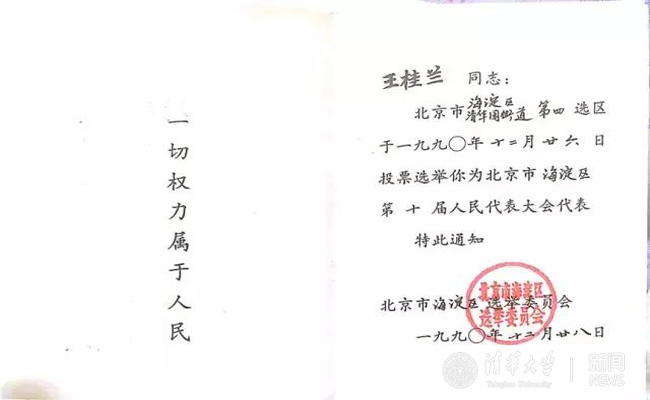 一切权力属于人民
王桂兰 同志:
北京市海淀区清华园街道第四选区
于一九九〇年十二月廿六日
投票选举你为北京市海淀区
第十届人民代表大会代表
特此通知
北京市海淀区选举委员会
一九九〇年十二月廿八日
北京市海淀区
选举委员会
清华大学
Tsinghua University
新闻
NEWS